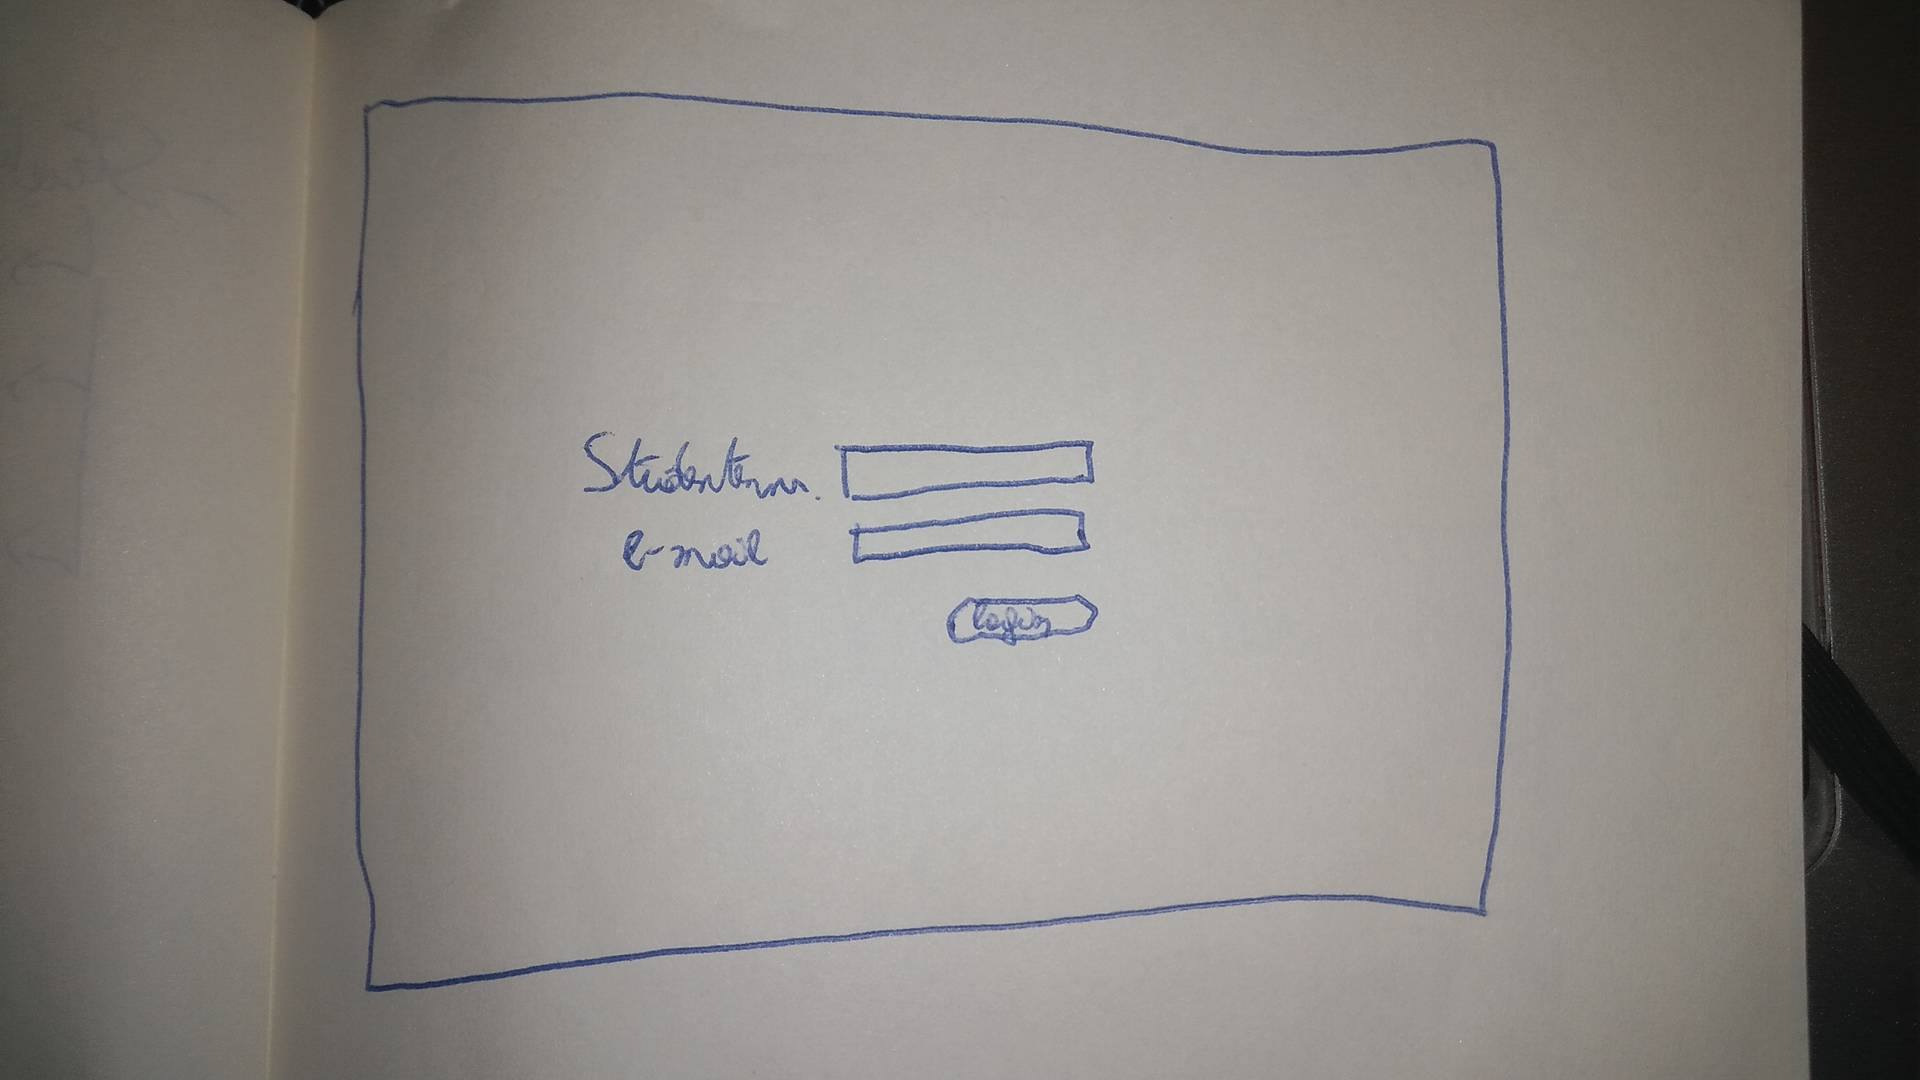 Studentennr.
e-mail
login